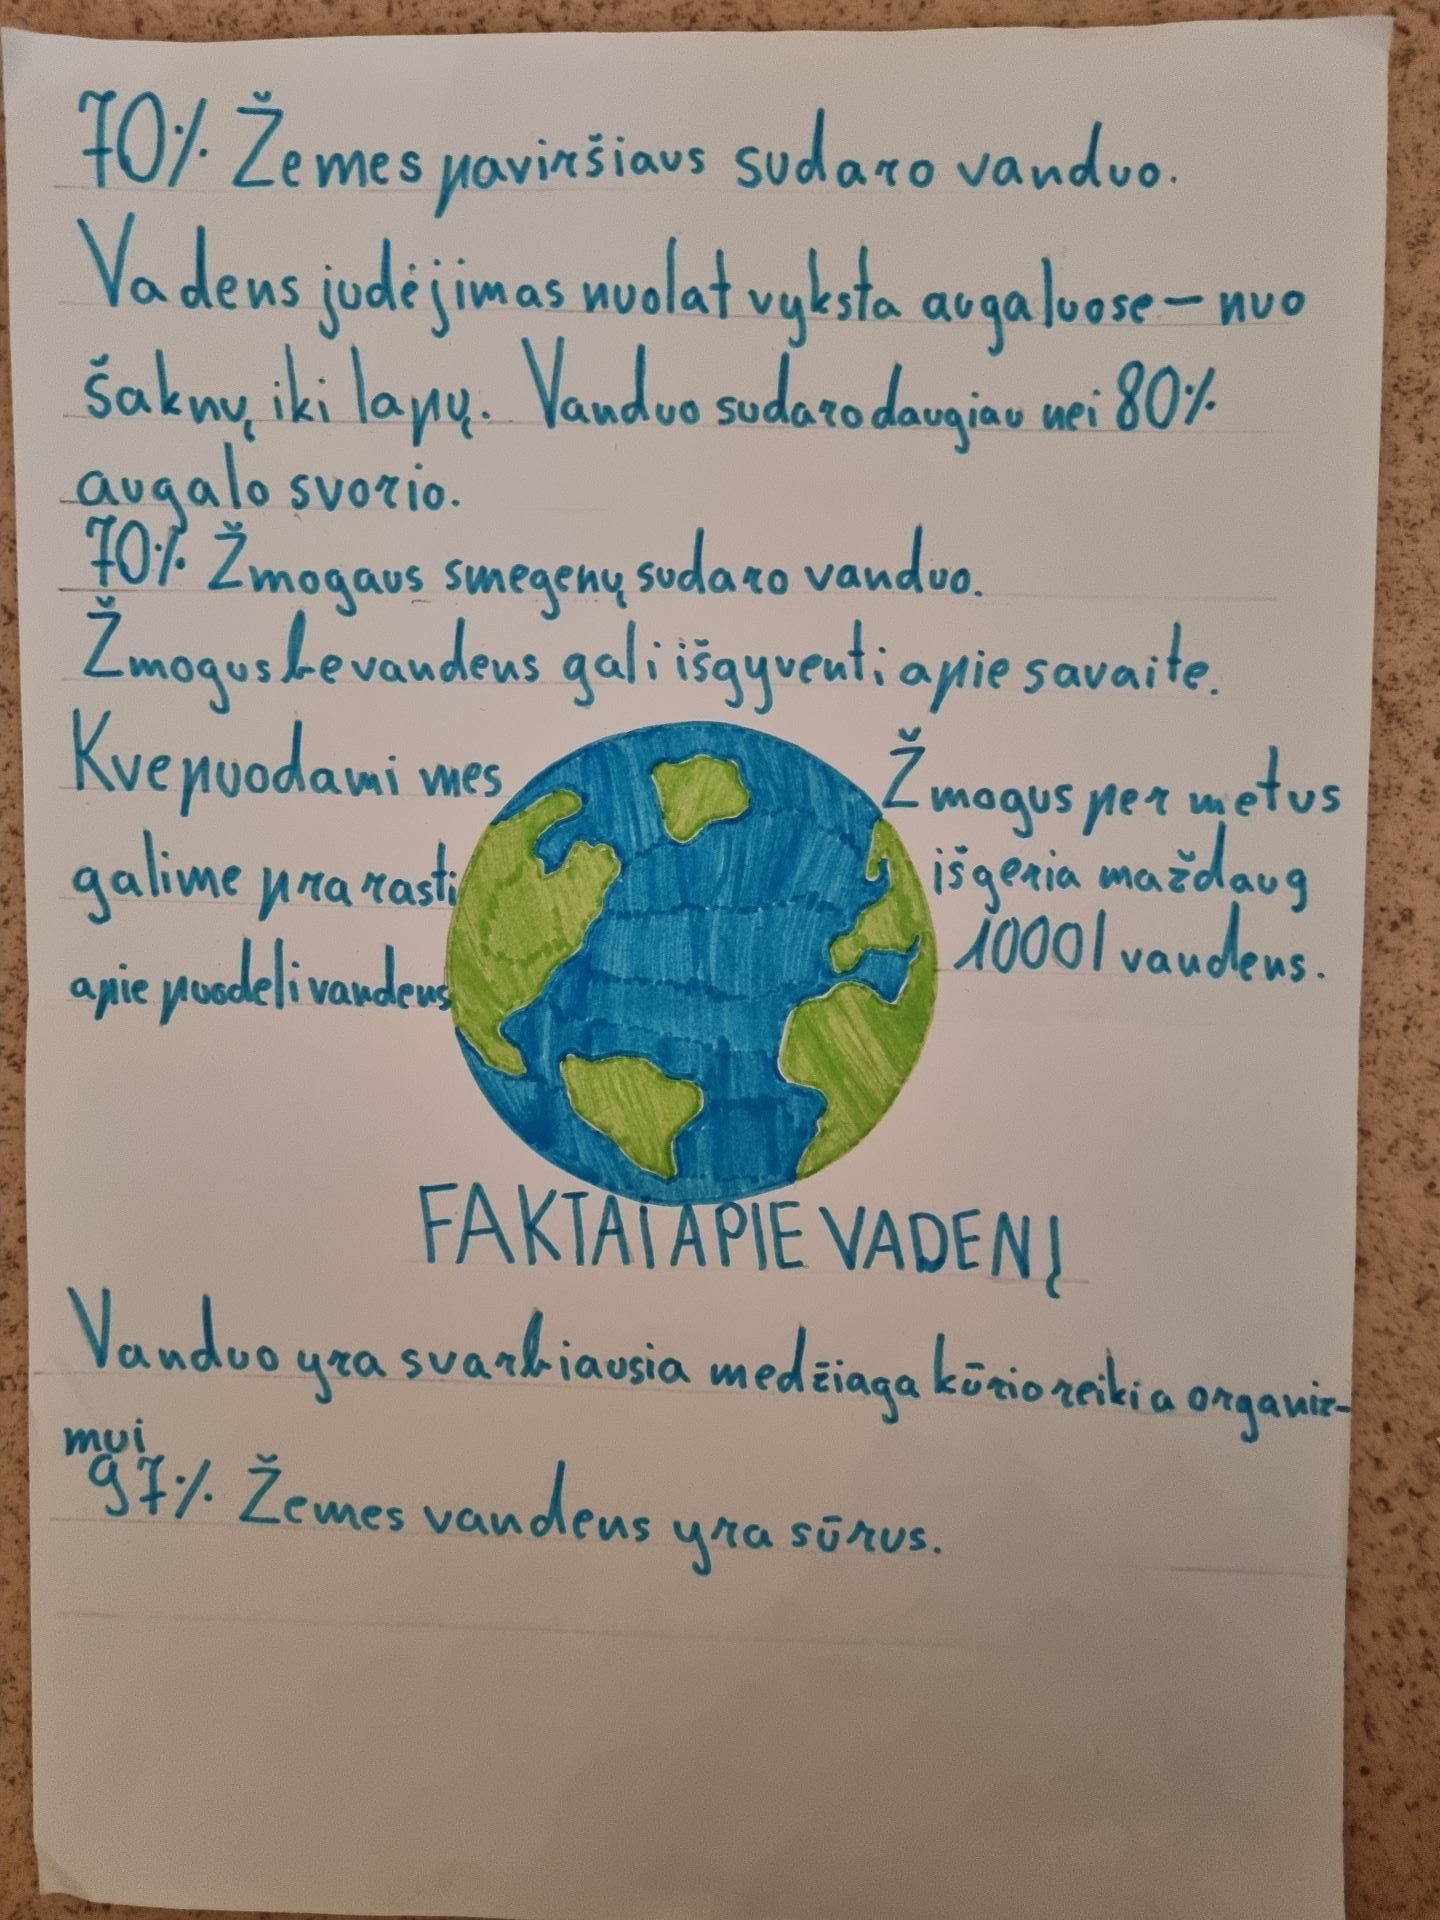 70% Žemes paviršiaus sudaro vanduo.
Vadens judėjimas nuolat vyksta augaluose – nuo
šaknų iki lapų. Vanduo sudaro daugiau nei 80%
augalo svorio.
70% Žmogaus smegenų sudaro vanduo.
Žmogus be vandens gali išgyventi apie savaite.
Kvepuodami mes
galime prarasti
apie puodeli vandens
Žmogus per metus
išgeria maždaug
1000l vandens.
FAKTAI APIE VADENĮ
Vanduo yra svarbiausia medžiaga kūrio reikia organiz-
mui
97% Žemes vandens yra sūrus.